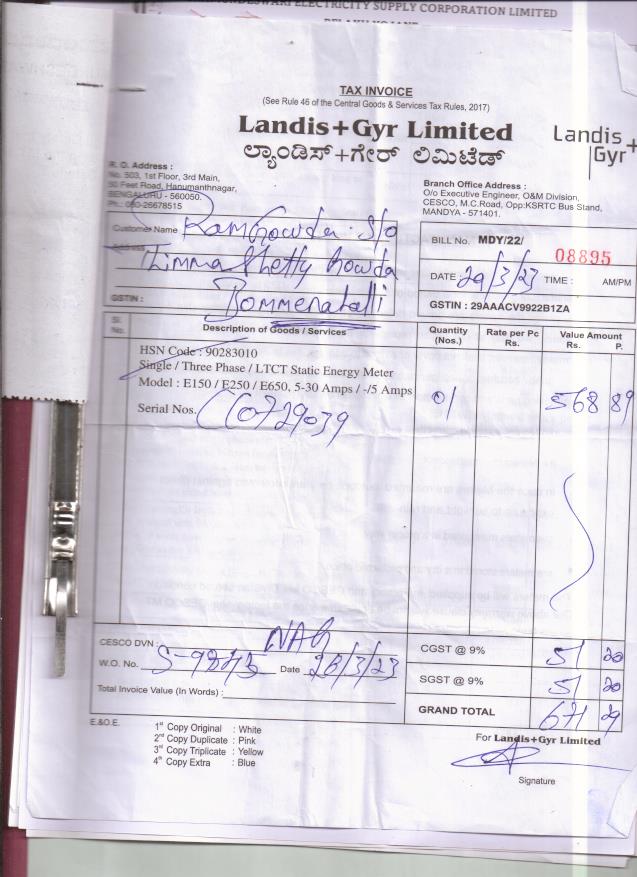 ELECTRICITY SUPPLY CORPORATION LIMITED
TAX INVOICE
(See Rule 46 of the Central Goods & Services Tax Rules, 2017)
Landis+Gyr Limited
ಲ್ಯಾಂಡಿಸ್+ಗೇರ್ ಲಿಮಿಟೆಡ್
Landis+
Gyr
R. O. Address :
No. 503, 1st Floor, 3rd Main,
50 Feet Road, Hanumanthnagar,
BENGALURU - 560050.
Ph.: 080-26678515
Branch Office Address :
O/o Executive Engineer, O&M Division,
CESCO, M.C.Road, Opp:KSRTC Bus Stand,
MANDYA - 571401.
Customer Name Ramgowda S/o
Address Timma Shetty Gowda
GSTIN : Bommenahalli
BILL No. MDY/22/ 08895
DATE : 29/3/23 TIME : AM/PM
GSTIN : 29AAACV9922B1ZA
Sl. No. Description of Goods / Services Quantity (Nos.) Rate per Pc Rs. Value Amount Rs. P.
HSN Code : 90283010
Single / Three Phase / LTCT Static Energy Meter
Model : E150 / E250 / E650, 5-30 Amps / -/5 Amps 01 568 89
Serial Nos. CC0729039
CESCO DVN : NAG
W.O. No. Date 28/3/23
Total Invoice Value (In Words) :
CGST @ 9% 51 20
SGST @ 9% 51 20
GRAND TOTAL 671 29
E.&O.E.
1st Copy Original : White
2nd Copy Duplicate : Pink
3rd Copy Triplicate : Yellow
4th Copy Extra : Blue
For Landis+Gyr Limited
Signature